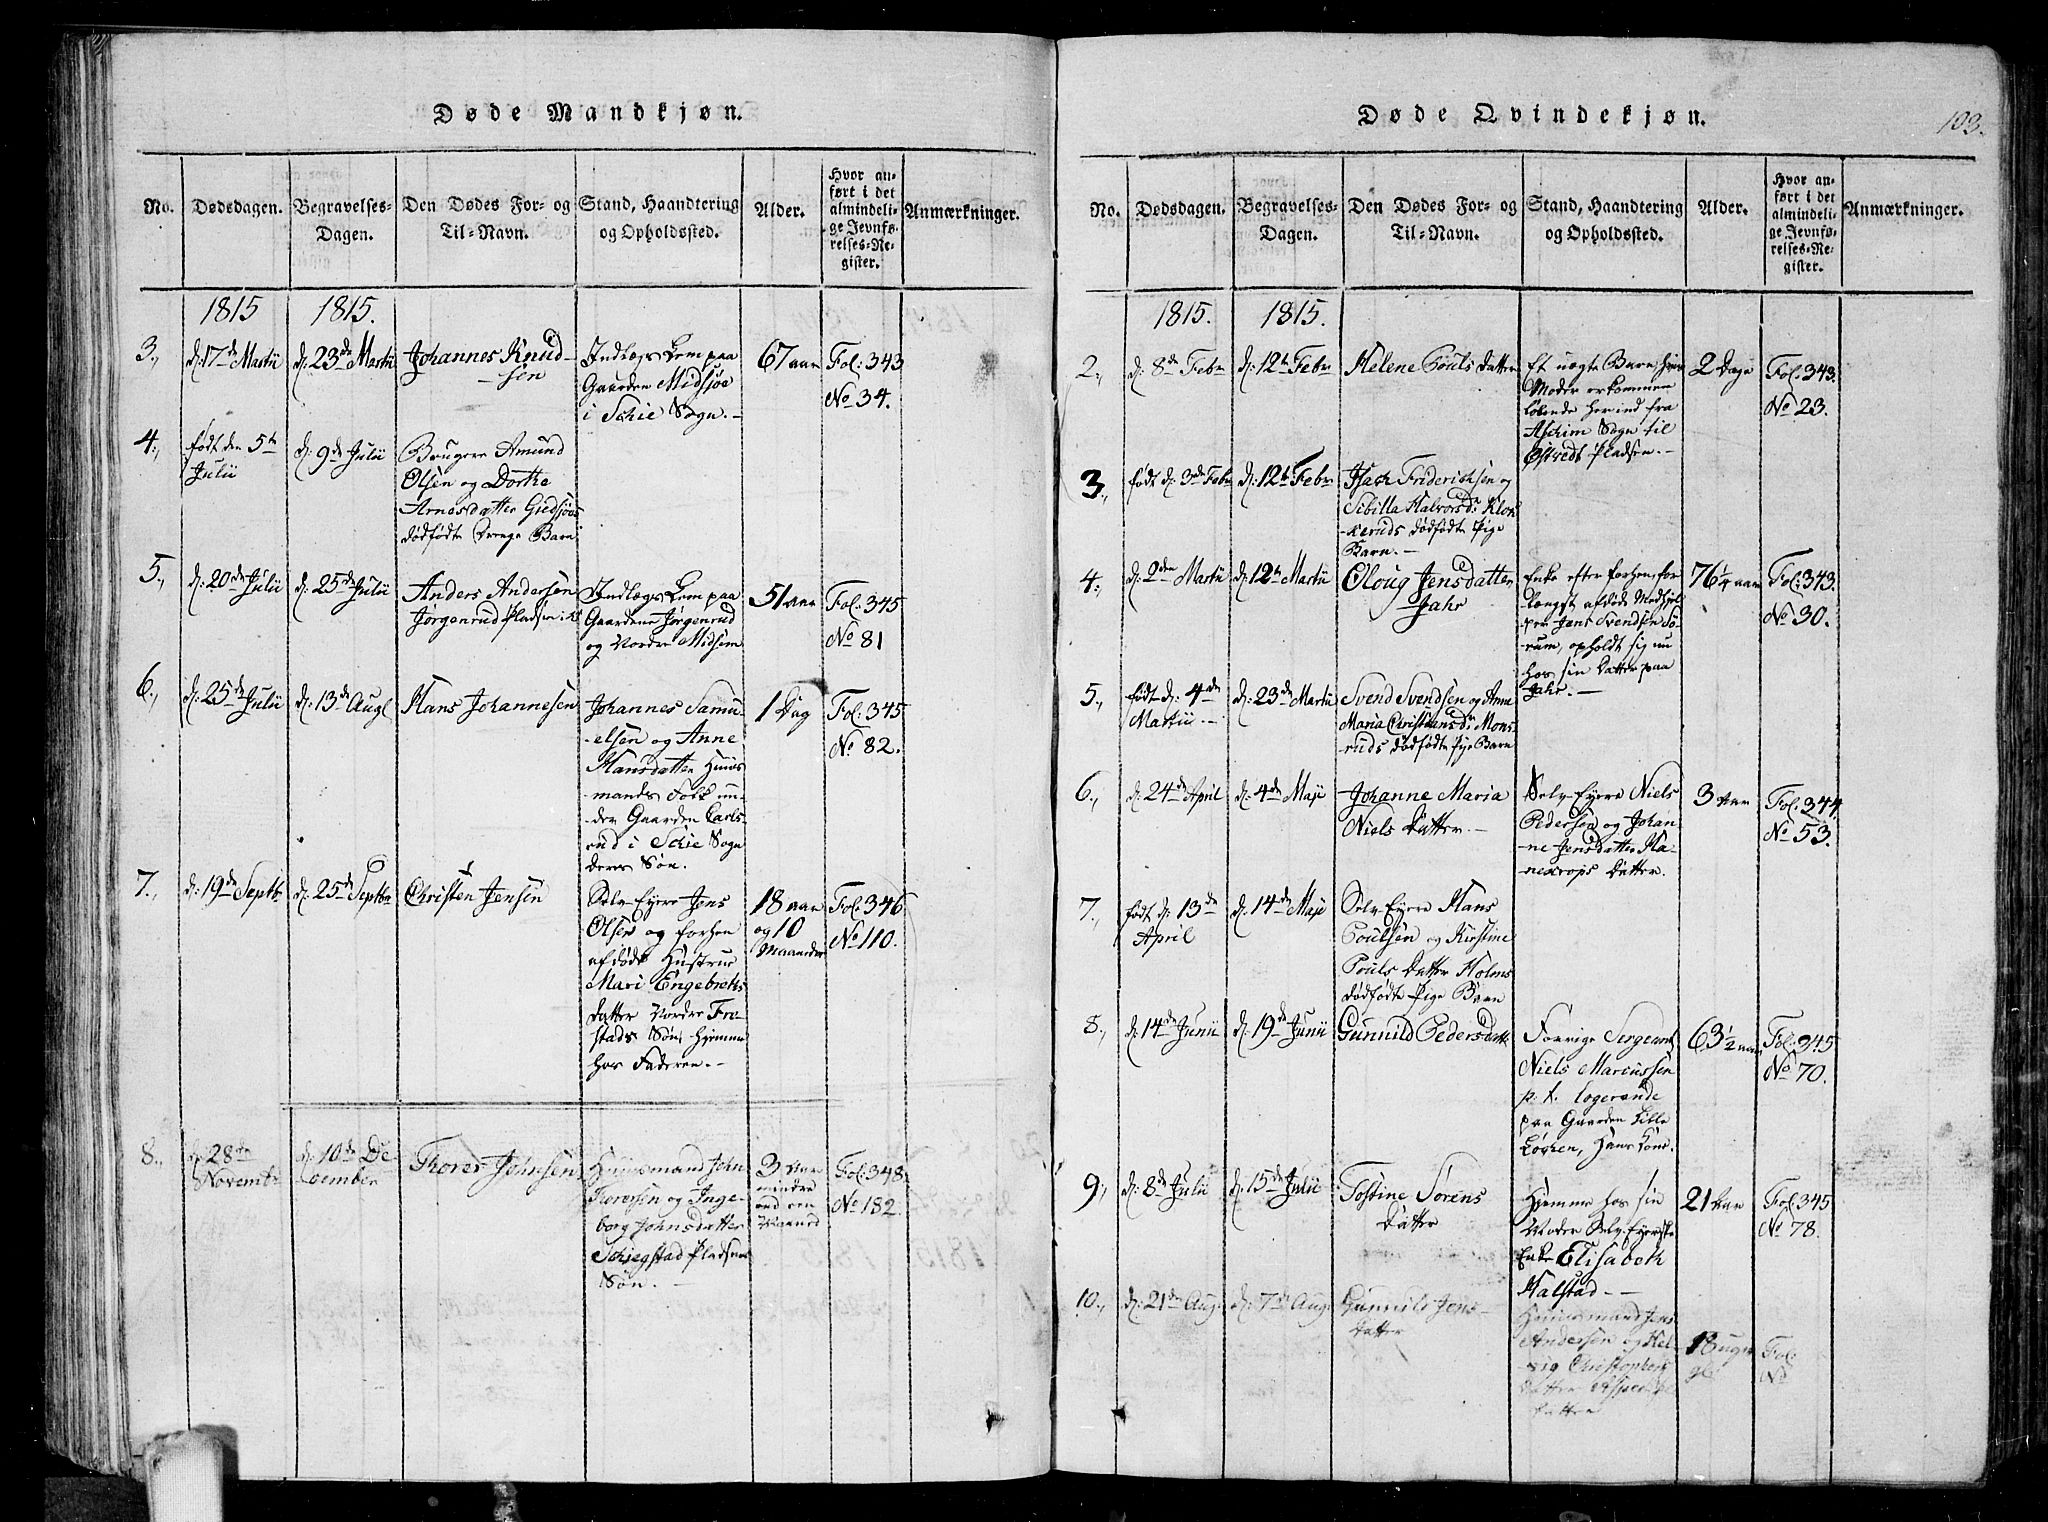 Døde Mandkjøn.
No.
Dødsdagen.
Begravelses-
Dagen.
Den Dødes For- og
Til-Navn.
Stand, Haandtering
og Opholdssted.
Alder.
Hvor an-
ført i det
almindeli-
ge Jevnfø-
relses-Re-
gister.
Anmærkninger.
1815
1815.
3.,
d: 17de Martii
d: 23de Martii
Johannes Knud-
sen
Indlægs Lem paa
Gaarden Midsjøe
i Schie Sogn.-
67 aar
Fol: 343
No 34.
4.,
født den 5te
Julii
d: 9de Julii
Brugere Amund
Olsen og Dorthe
Arnesdatter Giedsjøes
dødfødte Drenge Barn
5.,
d: 20de Julii
d: 25de Julii
Anders Andersen
Jørgenrud Pladsen
Indlægs Lem paa
Gaardene Jørgenrud
og Nordre Midsem
51 aar
Fol: 345
No 81
6.,
d: 25de Julii
d: 13de Augl
Hans Johannesen
Johannes Samu-
elsen og Anne
Hansdatter Huus
mands Folk un-
der Gaarden Carls-
rud i Schie Sogn
deres Søn.
1 Dag
Fol: 345
No 82.
7.,
d: 19de Septb.
d: 25de Septbr
Christen Jensen
Selv-Eyere Jens
Olsen og forhen
afdøde Hustrue
Mari Engebreths
datter Nordre Fro-
stads Søn, hjemme
hos Faderen.-
18 aar
og 10
Maaneder
Fol: 346
No 110.
8.,
d: 28de
Novemb:
d: 10de De-
cember
Thorer Johnsen
Huusmand John
Thorersen og Inge-
borg Johnsdatter
Schiegstad Pladsens
Søn.-
3 aar
mindre
end een
Maaned
Fol: 348
No 182.
Døde Qvindekjøn.
103.
No.
Dødsdagen.
Begravelses-
Dagen.
Den Dødes For- og
Til-Navn.
Stand, Haandtering
og Opholdssted.
Alder.
Hvor an-
ført i det
almindeli-
ge Jevnfø-
relses-Re-
gister.
Anmærkninger.
1815.
1815.
2.,
d: 8de Febr
d: 12te Febr
Helene Pouls datter
Et uægte Barn hvis
Moder er kommen
løbende her ind fra
Aschim Sogn til
Østreds Pladsen.-
2 Dage
Fol: 343.
No 23.
3.,
født d: 3de Febr
d: 12te Febr
Isach Friderichsen og
Sibilla Halvorsd: Klok-
keruds dødfødte Pige
Barn.-
4.,
d: 2den Martii
d: 12te Martii
Oloug Jensdatter
Jahr
Enke efter forhen for
længst afdøde Medhjel-
per Jens Svendsen Sø-
rum, opholdt sig nu
hos sin Datter paa
Jahr.-
76 1/4 aar
Fol: 343
No 30.
5.,
født d: 4de
Martii.-
d: 23de Martii
Svend Svendsen og Anne
Maria Christiansd: Mons-
ruds dødfødte Pige Barn
6.,
d: 24de April
d: 4de Maji
Johanne Maria
Niels Datter.-
Selv-Eyere Niels
Pedersen og Johan-
ne Jensdatter Ha-
nekrops Datter.
3 aar
Fol: 344
No 53.
7.,
født d: 13de
April
d: 14de Maji
Selv-Eyere Hans
Poulsen og Kirstine
Pouls Datter Holms
dødfødte Pige Barn
8.,
d: 14de Junii
d: 19de Junii
Gunnild Pedersdatt.
Forrige Sergeant
Niels Marcussen
p. t. logerende
paa Gaarden Lille
Løchen, Hans Kone.
63 1/2 aar
Fol: 345
No 70.
9.,
d: 8de Julii
d: 15de Julii
Tostine Sørens
Datter
Hjemme hos sin
Moder Selv-Eyerske
Enke Elisabeth
Halstad.-
21 aar
Fol: 345
No 78.
10.,
d: 21de Aug.
d: 7de Aug.
Gunnild Jens-
datter
Huusmand Jens
Andersen og Hel-
vig Christophers
datter
18 uger
gl.
Fol:
No